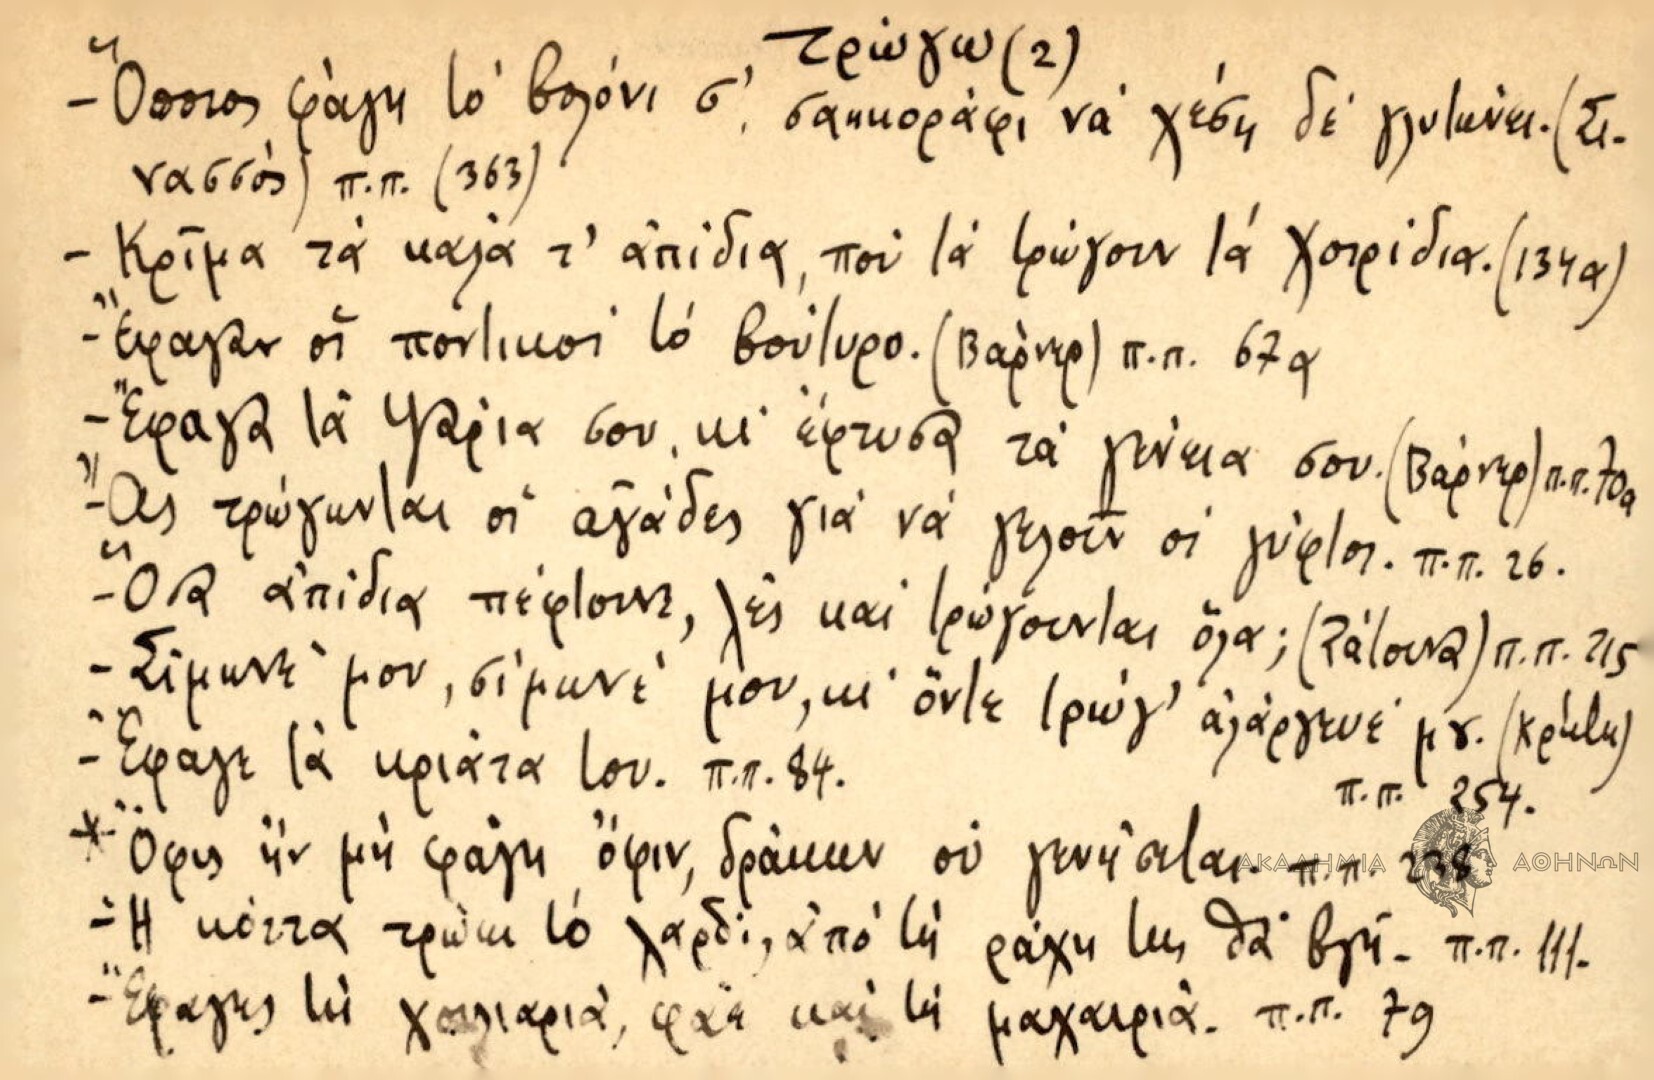 τρώγω (2)
- Ὅποιος φάγῃ τὸ βελόνι σ', σακκοράφι νὰ χέσῃ δὲ γλυτώνει. (Σι-
νασσός) π.π. (363)
- Κρῖμα τὰ καλὰ τ' ἀπίδια, ποὺ τὰ τρώγουν τὰ χοιρίδια. (134α)
- Ἔφαγαν οἱ ποντικοὶ τὸ βούτυρο. (Βάρνερ) π.π. 67α
- Ἔφαγα τὰ ψάρια σου, κι' ἔφτυσα τὰ γένεια σου. (Βάρνερ) π.π. 70α
- Ἂς τρώγωνται οἱ ἀγάδες γιὰ νὰ γελοῦν οἱ γύφτοι. π.π. 26.
- Ὅσα ἀπίδια πέφτουνε, λὲς καὶ τρώγουνται ὅλα; (Ζάτουνα) π.π. 215
- Σίμωνέ μου, σίμωνέ μου, κι' ὄντε τρώγ' ἀλάργευέ μου. (Κρήτη)
π.π. 254.
- Ἔφαγε τὰ κριάτα του. π.π. 84.
* Ὄφις ἢν μὴ φάγῃ ὄφιν, δράκων οὐ γενήσεται. π.π. 238
- Ἡ κόττα τρώει τὸ λαρδί, ἀπὸ τὴ ράχη της θὰ βγῇ. π.π. 111.
- Ἔφαγες τὴ χουλιαριά, φάε καὶ τὴ μαχαιριά. π.π. 79
ΑΚΑΔΗΜΙΑ ΑΘΗΝΩΝ